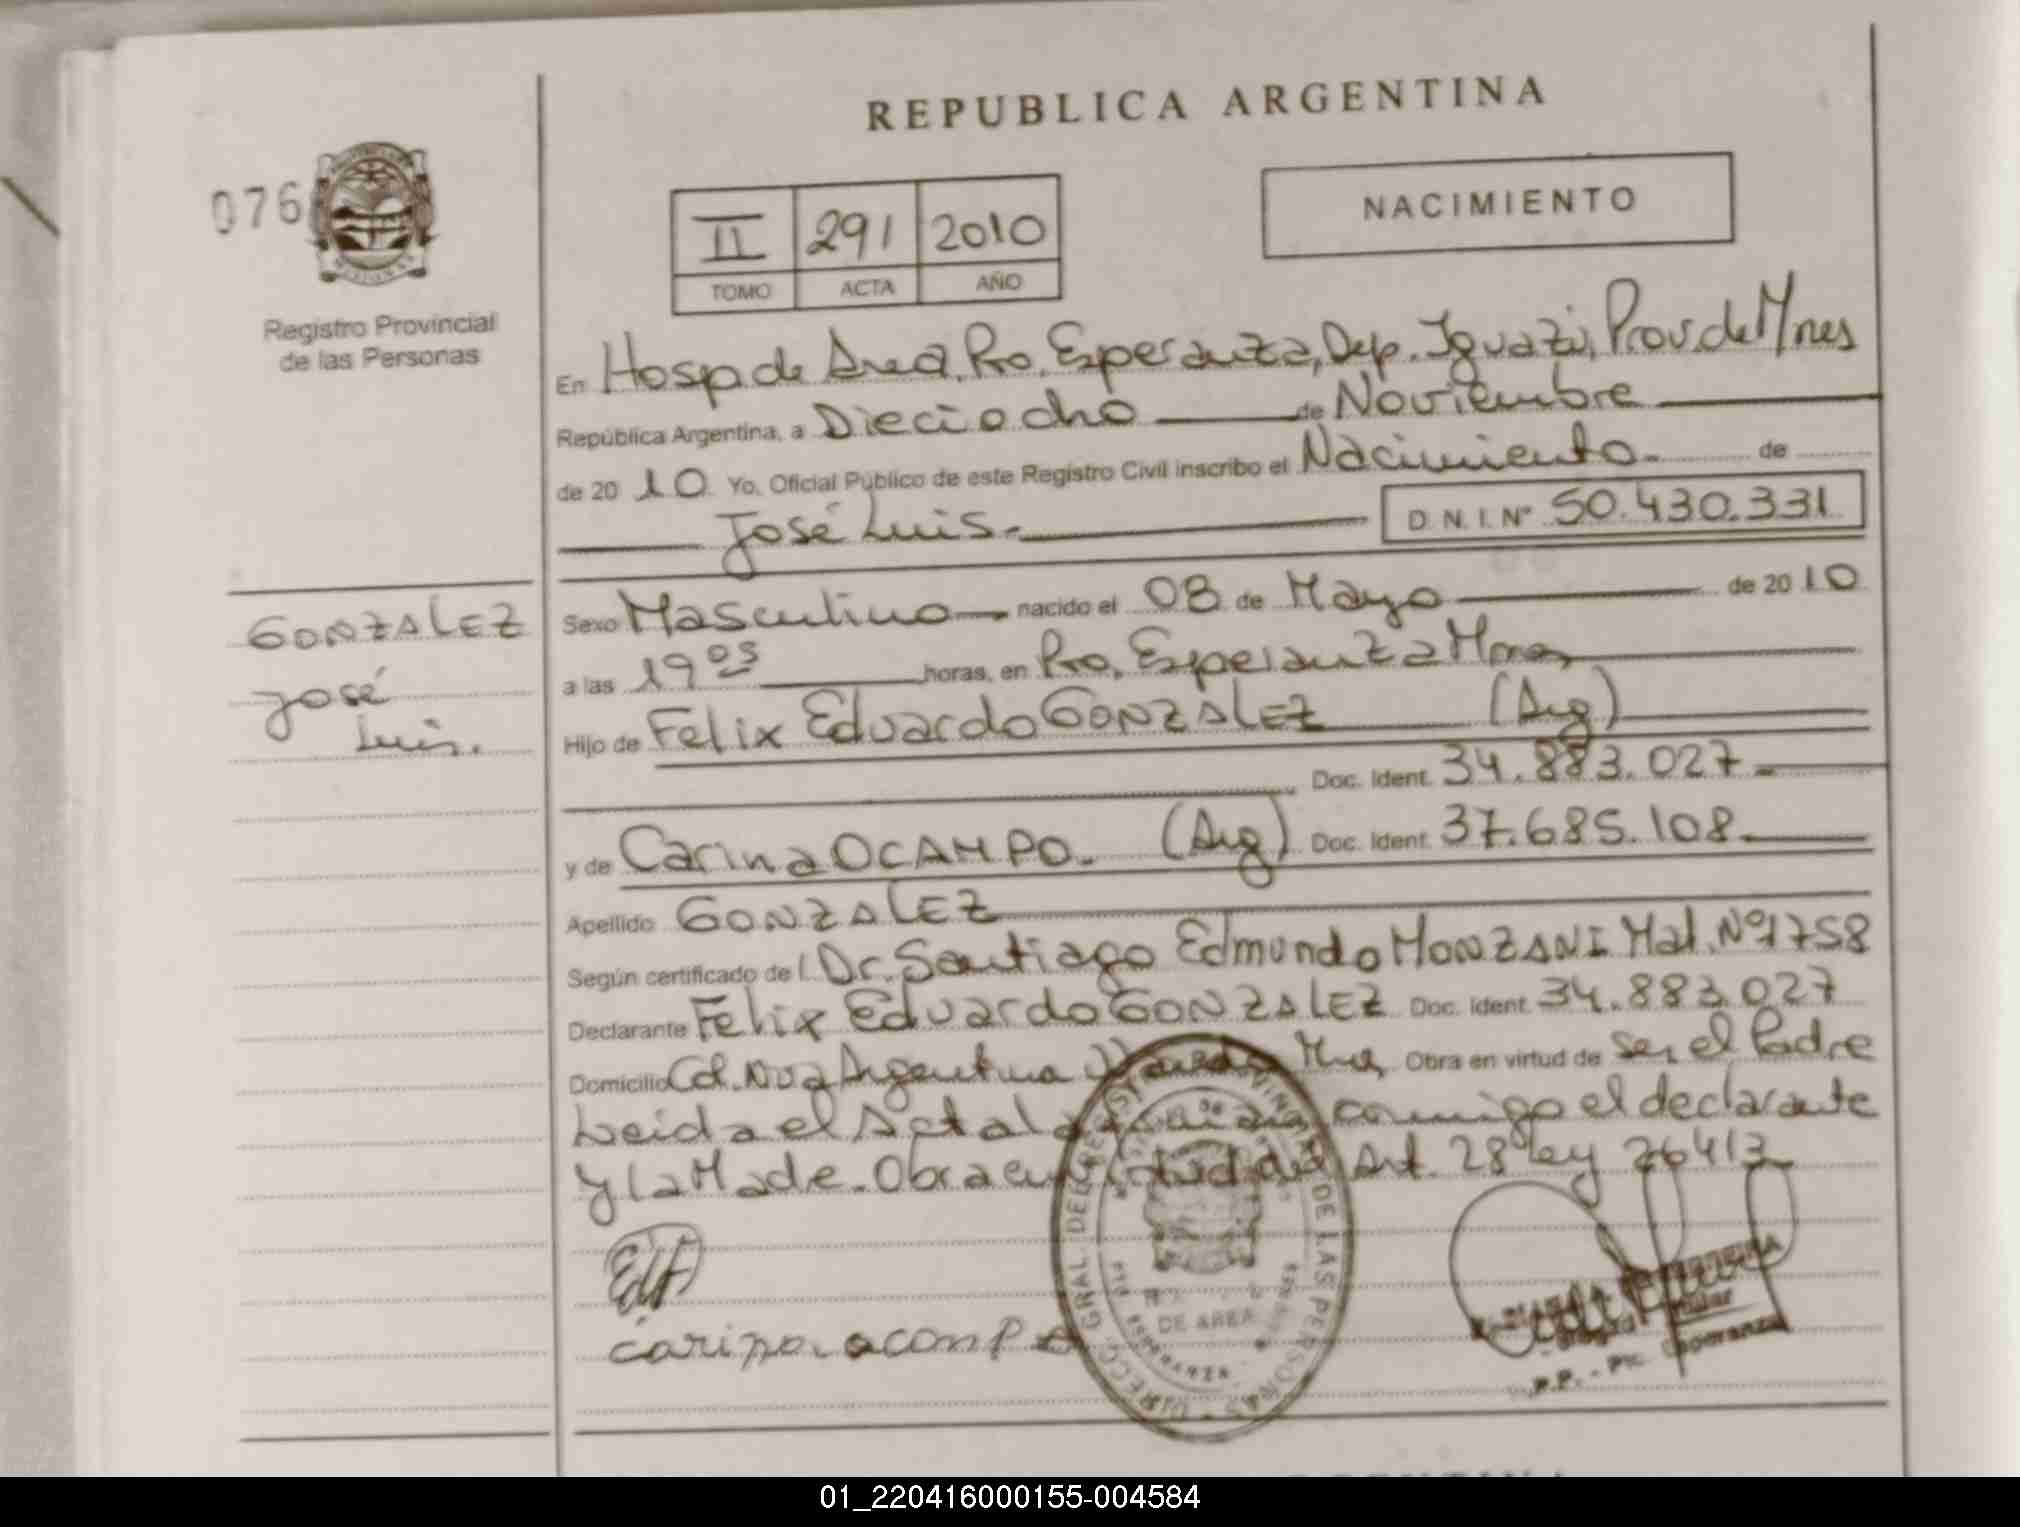 REPUBLICA ARGENTINA
076
II 291 2010
TOMO ACTA AÑO
NACIMIENTO
Registro Provincial
de las Personas
En Hosp. de Area, Pto. Esperanza, Dep. Iguazú, Prov. de Mnes
República Argentina, a Dieciocho de Noviembre
de 2010 Yo, Oficial Público de este Registro Civil inscribo el Nacimiento. de
José Luis. D. N. I. Nº 50.430.331
GONZALEZ
José
Luis.
Sexo Masculino nacido el 08 de Mayo de 2010
a las 19 05 horas, en Pto. Esperanza Mnes
Hijo de Felix Eduardo GONZALEZ (Arg)
Doc. Ident. 34.883.027
y de Carina OCAMPO. (Arg) Doc. Ident. 37.685.108
Apellido GONZALEZ
Según certificado de Dr. Santiago Edmundo MONZANI Mat. Nº 1758
Declarante Felix Eduardo GONZALEZ Doc. Ident. 34.883.027
Domicilio Col. Nva Argentina Mnes Obra en virtud de ser el Padre
Leida el Acta la conmigo el declarante
y la Madre. Obra en virtud del Art. 28 Ley 26413
carina ocampo
DE AREA
DE LAS PERSONAS
01_220416000155-004584